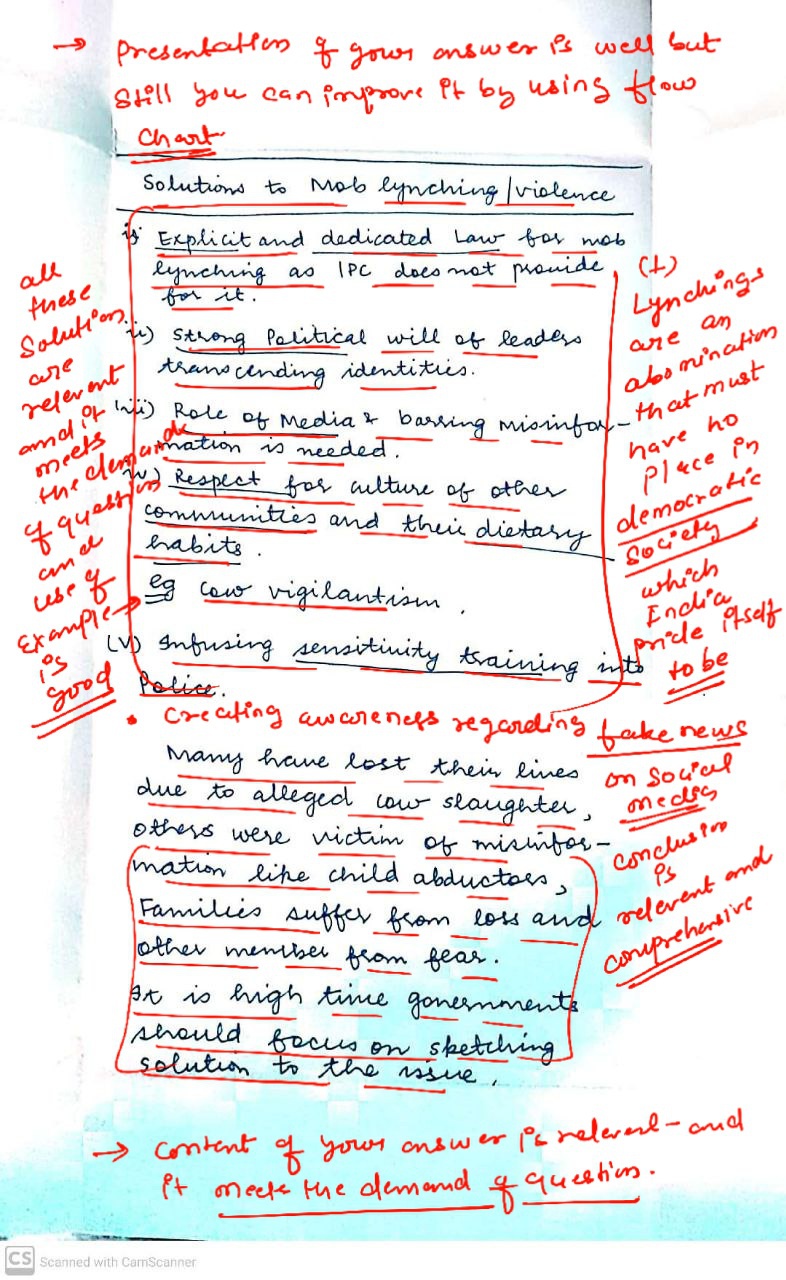 → Presentation of your answer is well but
still you can improve it by using flow
chart
Solutions to Mob lynching/violence
i) Explicit and dedicated Law for mob
lynching as IPC does not provide
for it.
ii) Strong Political will of leaders
transcending identities.
iii) Role of Media & barring misinfor-
mation is needed.
iv) Respect for culture of other
communities and their dietary
habits.
eg cow vigilantism.
(v) Infusing sensitivity training into
Police.
• creating awareness regarding fake news
on social
media
all
these
solutions
are
relevant
and it
meets
the demand
of question
and
use of
example
is
good
(+)
Lynchings
are an
abomination
that must
have no
place in
democratic
society
which
India
pride itself
to be
Many have lost their lives
due to alleged cow slaughter,
others were victim of misinfor-
mation like child abductors,
Families suffer from loss and
other member from fear.
It is high time governments
should focus on sketching
solution to the issue.
conclusion
is
relevent and
comprehensive
→ content of your answer is relevent and
it meets the demand of question.
CS Scanned with CamScanner